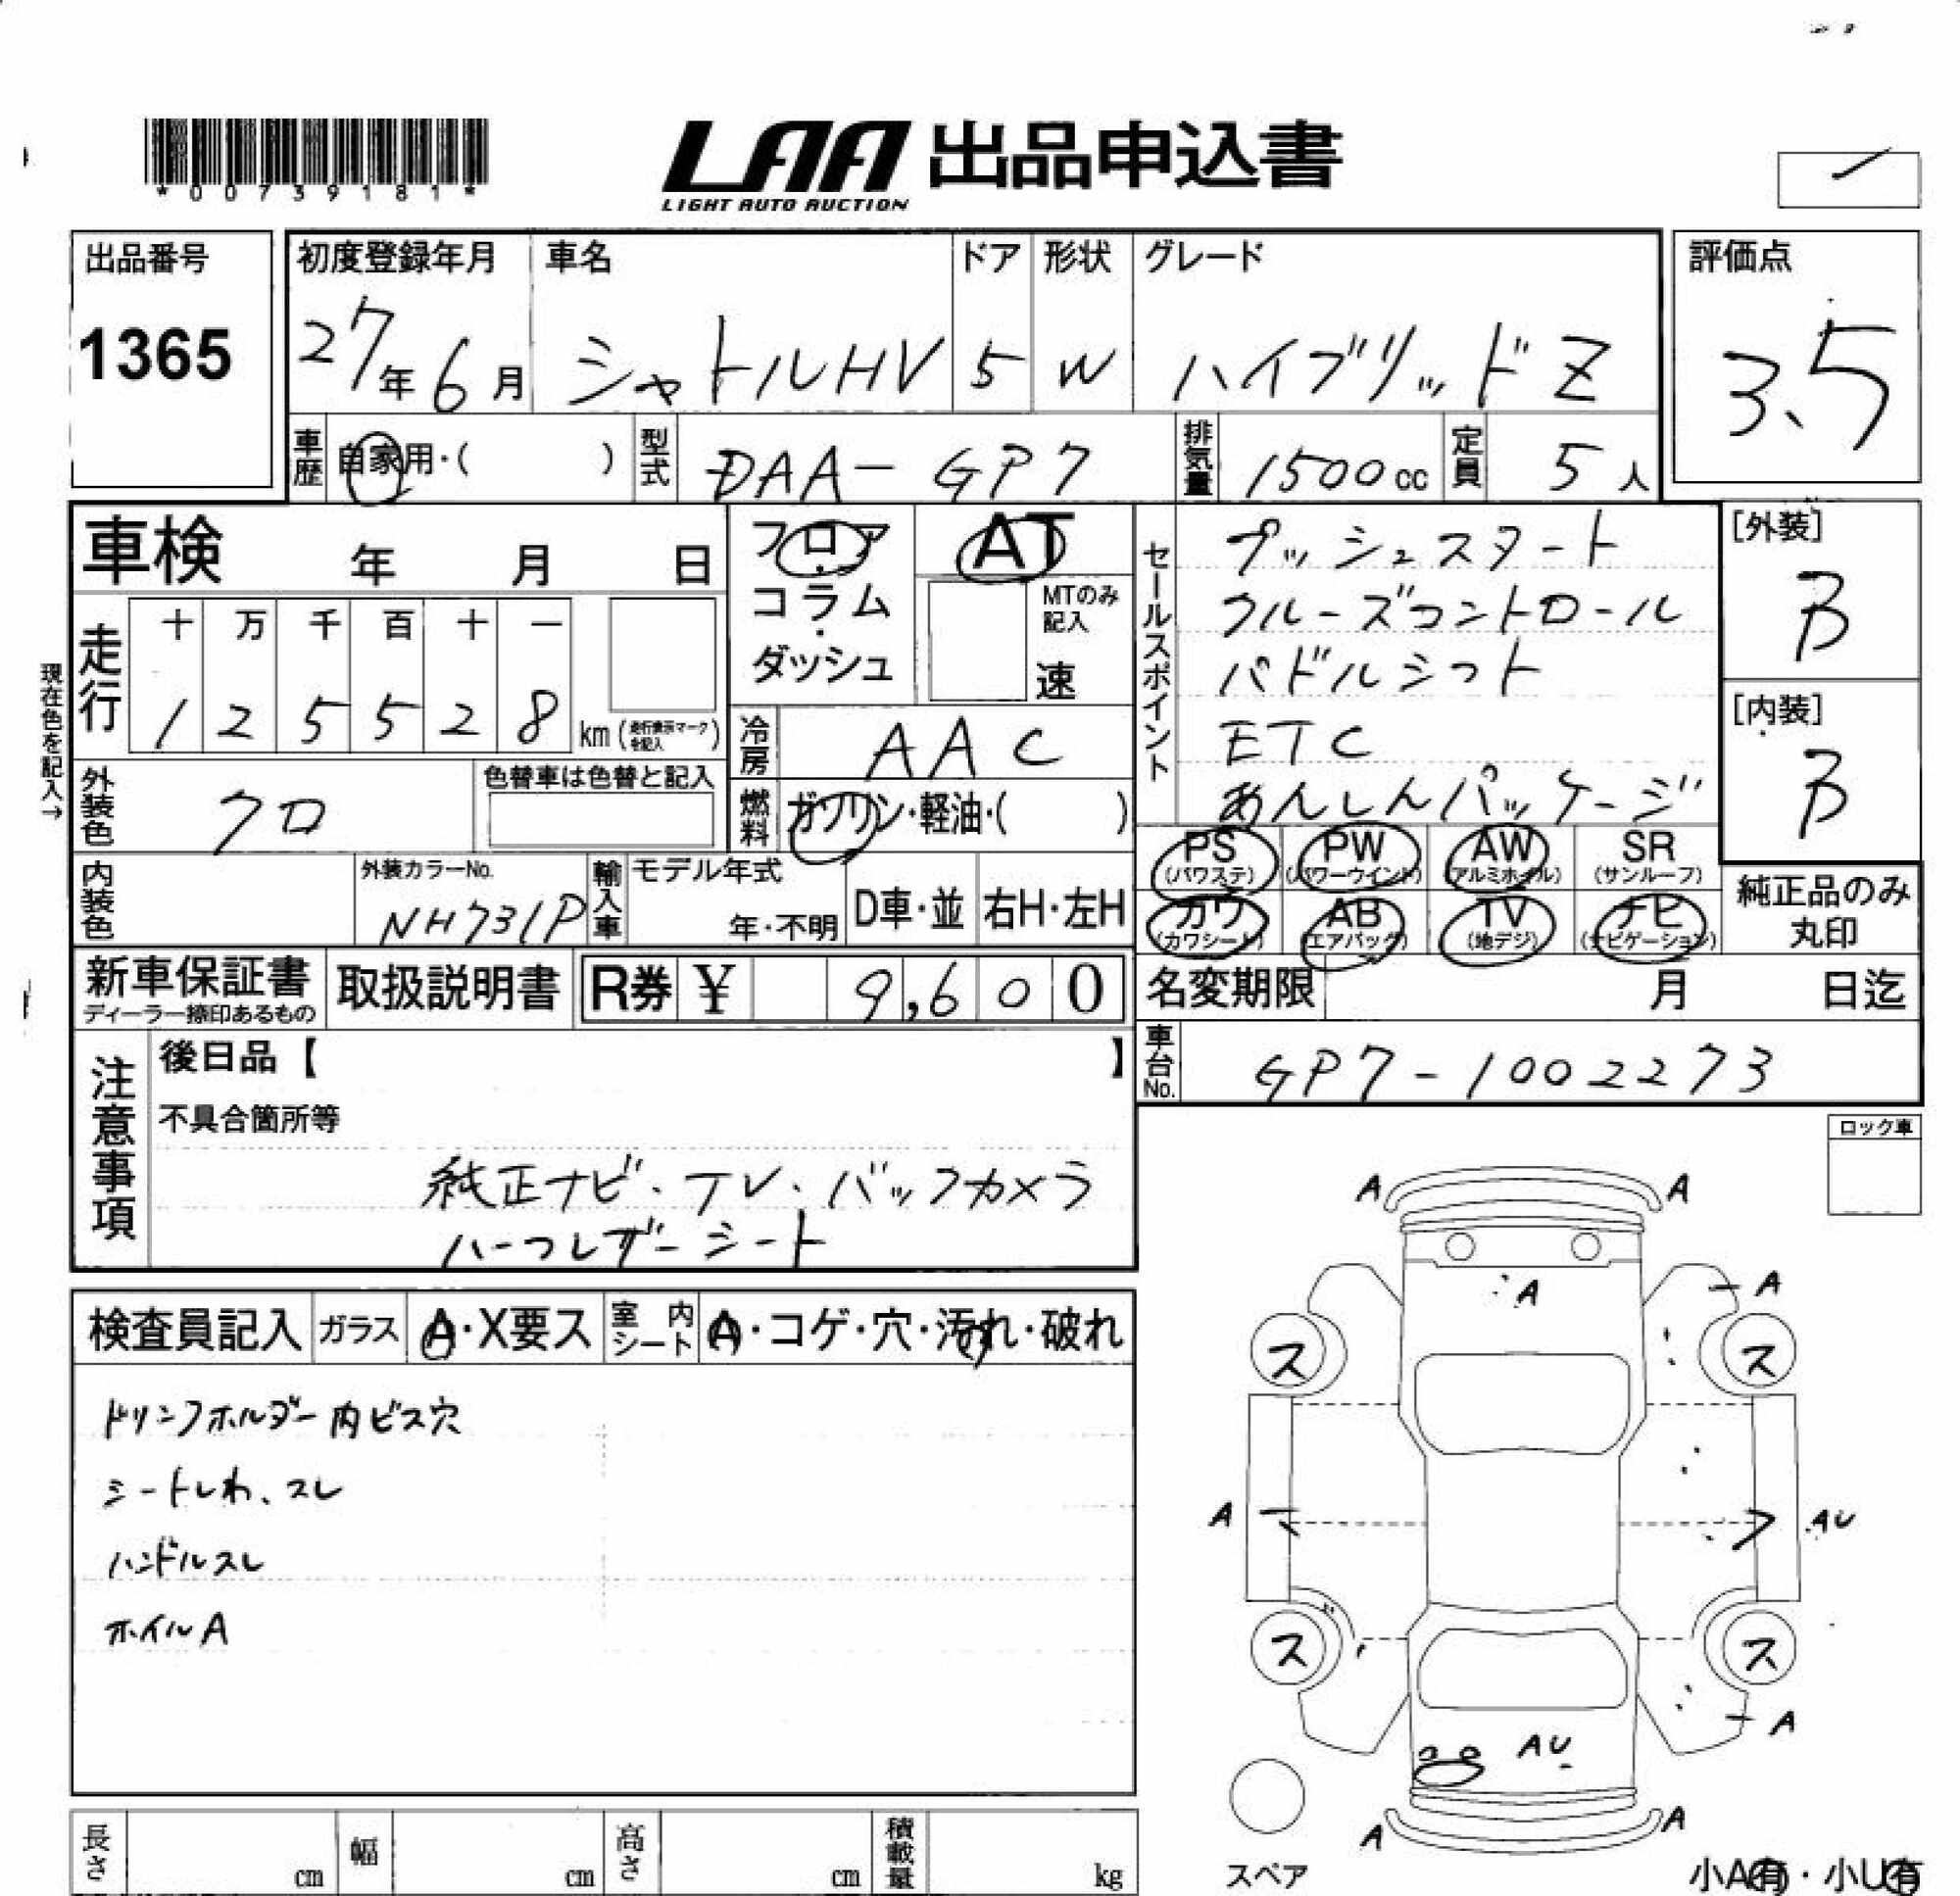 *00739181*
LAA 出品申込書
LIGHT AUTO AUCTION
出品番号
1365
初度登録年月
27年6月
車名
シャトルHV
ドア
5
形状
W
グレード
ハイブリッドZ
評価点
3.5
車歴
自家用・( )
型式
DAA-GP7
排気量
1500cc
定員
5人
車検 年 月 日
フロア・コラム・ダッシュ
AT
MTのみ記入
速
現在色を記入→
走行
十 万 千 百 十 一
1 2 5 5 2 8 km(走行表示マークを記入)
冷房
AAC
外装色
クロ
色替車は色替と記入
燃料
ガソリン・軽油・( )
内装色
外装カラーNo.
NH731P
輸入車
モデル年式
年・不明
D車・並
右H・左H
セールスポイント
プッシュスタート
クルーズコントロール
パドルシフト
ETC
あんしんパッケージ
[外装]
B
[内装]
B
PS (パワステ)
PW (パワーウインド)
AW (アルミホイル)
SR (サンルーフ)
カワ (カワシート)
AB (エアバッグ)
TV (地デジ)
ナビ (ナビゲーション)
純正品のみ丸印
新車保証書
ディーラー捺印あるもの
取扱説明書
R券 ¥ 9,600
名変期限 月 日迄
車台No.
GP7-1002273
注意事項
後日品【 】
不具合箇所等
純正ナビ・TV・バックカメラ
ハーフレザーシート
ロック車
検査員記入
ガラス
A・X要ス
室内シート
A・コゲ・穴・汚れ・破れ
ドリンクホルダー内ビス穴
シートしわ、スレ
ハンドルスレ
ホイルA
A A
A
A
ス ス
A AU
ス ス
A
AU
A A
スペア
小A有・小U有
長さ cm
幅 cm
高さ cm
積載量 kg